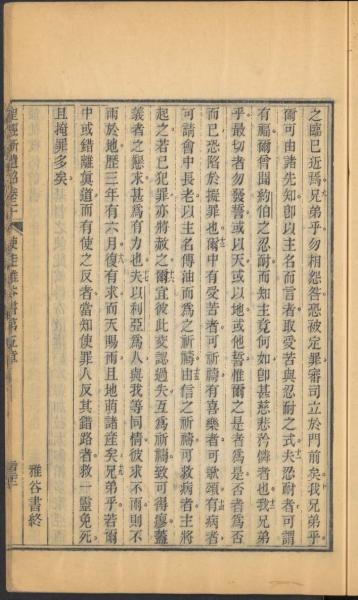 之臨已近焉兄弟乎勿相怨咎恐被定罪審司立於門前矣我兄弟乎
爾可由諸先知卽以主名而言者取受苦與忍耐之式夫忍耐者可謂
有福爾曾聞約伯之忍耐而知主竟何如卽甚慈悲矜憐者也我兄弟
乎最切者勿發誓或以天或以地或他誓惟爾之是者爲是否者爲否
而已恐陷於擬罪也爾中有受苦者可祈禱有喜樂者可歌頌有病者
可請會中長老以主名傅油而爲之祈禱由信之祈禱可救病者主將
起之若已犯罪亦將赦之爾宜彼此交認過失互爲祈禱致可得瘳蓋
義者之懇求甚爲有力也夫以利亞爲人與我等同情彼求不雨則不
雨於地歷三年有六月復有求而天賜雨且地萌諸産矣兄弟乎若爾
中或錯離眞道而有使之反者當知使罪人反其錯路者救一靈免死
且掩罪多矣
雅谷書終
聖經新遺詔卷十
使徒雅谷書第五章